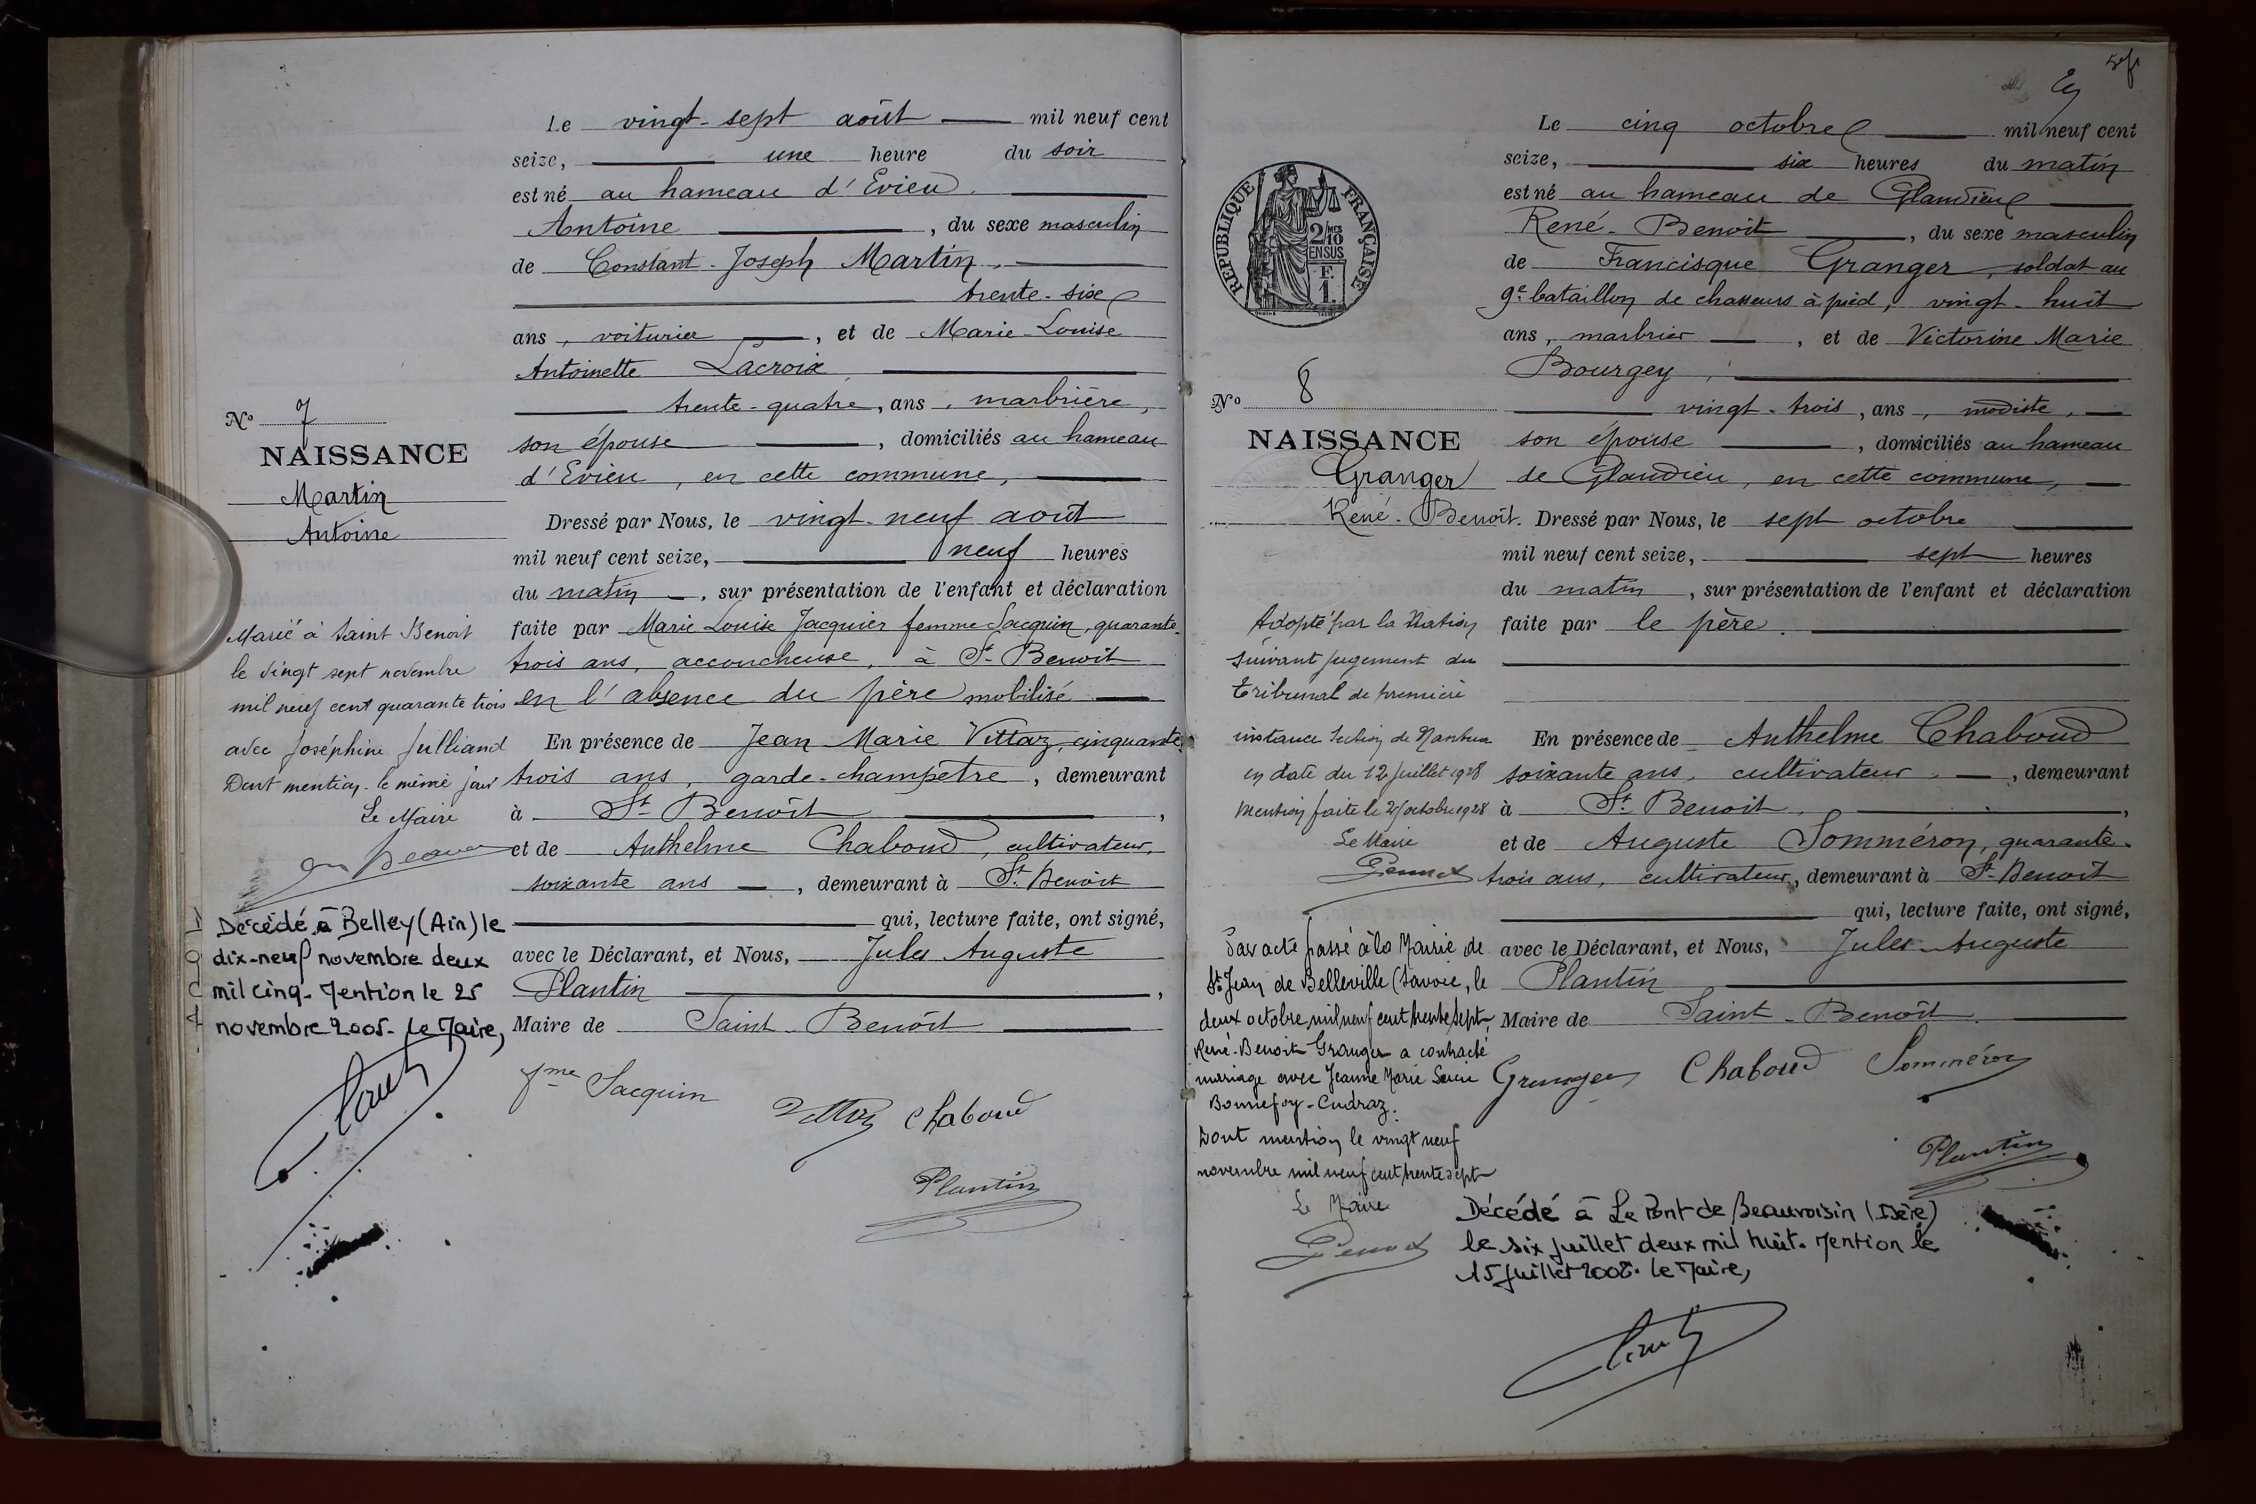 Le vingt-sept août mil neuf cent
seize, une heure du soir
est né au hameau d'Evieu.
Antoine, du sexe masculin
de Constant-Joseph Martin,
trente-six
ans, voiturier, et de Marie Louise
Antoinette Lacroix,
trente-quatre, ans, marbrière,
son épouse, domiciliés au hameau
d'Evieu, en cette commune,
Dressé par Nous, le vingt-neuf août
mil neuf cent seize, neuf heures
du matin, sur présentation de l'enfant et déclaration
faite par Marie Louise Jacquier femme Jacquin, quarante-
trois ans, accoucheuse, à St Benoit
en l'absence du père mobilisé
En présence de Jean Marie Vittaz, cinquante
trois ans, garde-champêtre, demeurant
à St Benoît,
et de Anthelme Chaboud, cultivateur,
soixante ans, demeurant à St Benoit
qui, lecture faite, ont signé,
avec le Déclarant, et Nous, Jules Auguste
Plantin,
Maire de Saint-Benoît
fme Jacquin
Vittaz Chaboud
Plantin
No 7
NAISSANCE
Martin
Antoine
Marié à Saint Benoit
le vingt sept novembre
mil neuf cent quarante trois
avec Joséphine Julliand
Dont mention le même jour
Le Maire
Décédé à Belley (Ain) le
dix-neuf novembre deux
mil cinq. Mention le 25
novembre 2005. Le Maire,
Le cinq octobre mil neuf cent
seize, six heures du matin
est né au hameau de Glandieu
René-Benoit, du sexe masculin
de Francisque Granger, soldat au
9e bataillon de chasseurs à pied, vingt-huit
ans, marbrier, et de Victorine Marie
Bourgey,
vingt-trois, ans, modiste,
son épouse, domiciliés au hameau
de Glandieu, en cette commune,
Dressé par Nous, le sept octobre
mil neuf cent seize, sept heures
du matin, sur présentation de l'enfant et déclaration
faite par le père.
En présence de Anthelme Chaboud
soixante ans, cultivateur, demeurant
à St Benoit,
et de Auguste Somméron, quarante-
trois ans, cultivateur, demeurant à St Benoit
qui, lecture faite, ont signé,
avec le Déclarant, et Nous, Jules-Auguste
Plantin
Maire de Saint-Benoît
Granger Chaboud Somméron
Plantin
RÉPUBLIQUE FRANÇAISE
2/10
EN SUS
F.
1.
No 8
NAISSANCE
Granger
René-Benoît.
Adopté par la Nation
suivant jugement du
tribunal de première
instance section de Nantua
en date du 12 juillet 1928
Mention faite le octobre 1928
Le Maire
Par acte passé à la Mairie de
St Jean de Belleville (Savoie, le
deux octobre mil neuf cent trente sept,
René-Benoit Granger a contracté
mariage avec Jeanne Marie
Bonnefoy-Cudraz.
Dont mention le vingt neuf
novembre mil neuf cent trente sept
Le Maire
Décédé à Le Pont de Beauvoisin (Isère)
le six juillet deux mil huit. Mention le
15 juillet 2008. Le Maire,